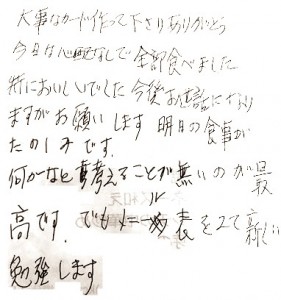 大事なカード作って下さりありがとう
今日は心配なしで全部食べました
特においしいでした 今後お世話になり
ますがお願いします 明日の食事が
たのしみです.
何かなと考えることが無いのが最
高です. でもメニュー表を見て新しい
勉強します